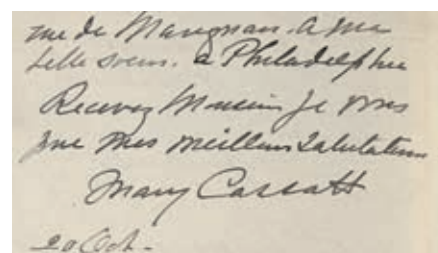 rue de Marignan. a ma
belle soeur. a Philadelphie
Recevez Monsieur je vous
prie mes meilleurs salutations
Mary Cassatt
20 Oct.